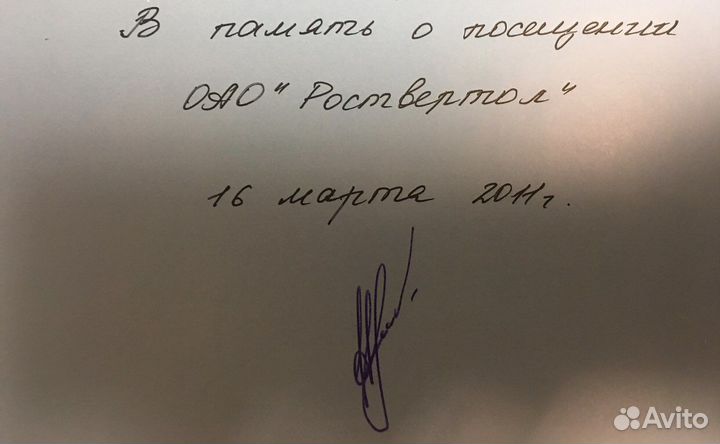 В память о посещении
ОАО "Роствертол"
16 марта 2011г.
Avito